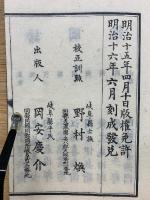 明治十五年四月十日版權免許
明治十六年六月刻成發兌
岐阜縣士族
校正訓點 野村煥
岐阜縣平民
出版人 岡安慶介